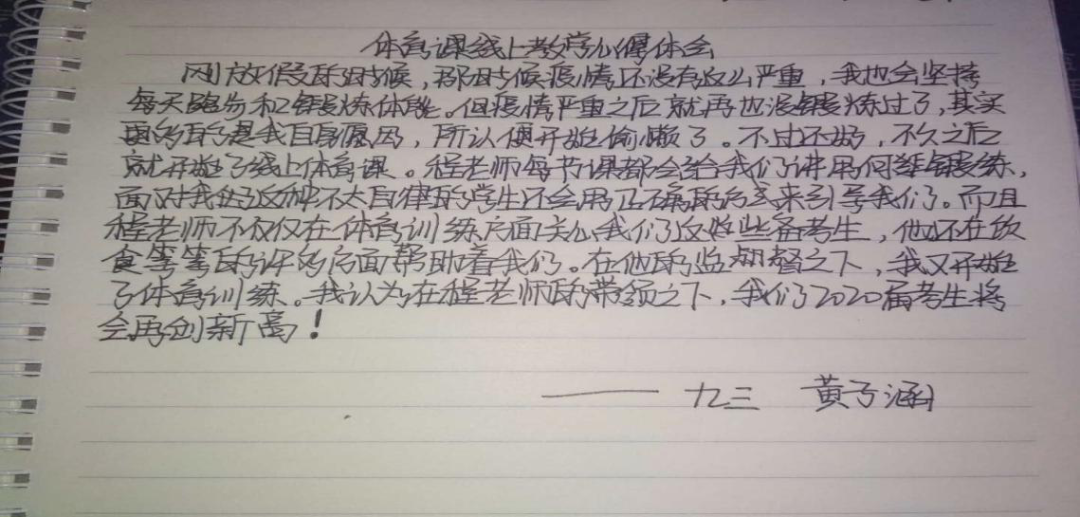 体育课线上教学心得体会
刚放假的时候，那时候疫情还没有这么严重，我也会坚持
每天跑步和锻炼体能。但疫情严重之后就再也没锻炼过了，其实
更多的是我自身原因，所以便开始偷懒了。不过还好，不久之后
就开始了线上体育课。程老师每节课都会给我们讲用何锻练，
面对我们这种不太自律的学生还会用正确的方式来引导我们。而且
程老师不仅仅在体育训练方面关心我们这些备考生，他还在饮
食等等的许多方面帮助着我们。在他的监督之下，我又开始
了体育训练。我认为在程老师的带领之下，我们2020届考生将
会再创新高！
—— 九三 黄子涵